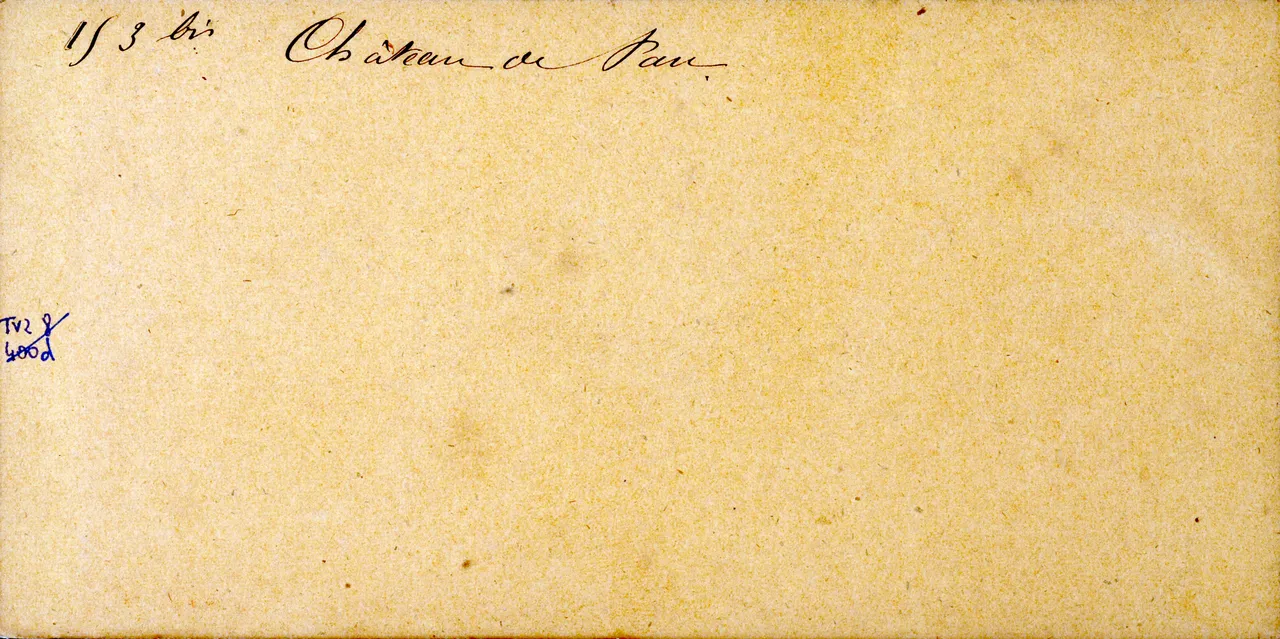 153 bis Château de Pau.
TV2 8/
400d